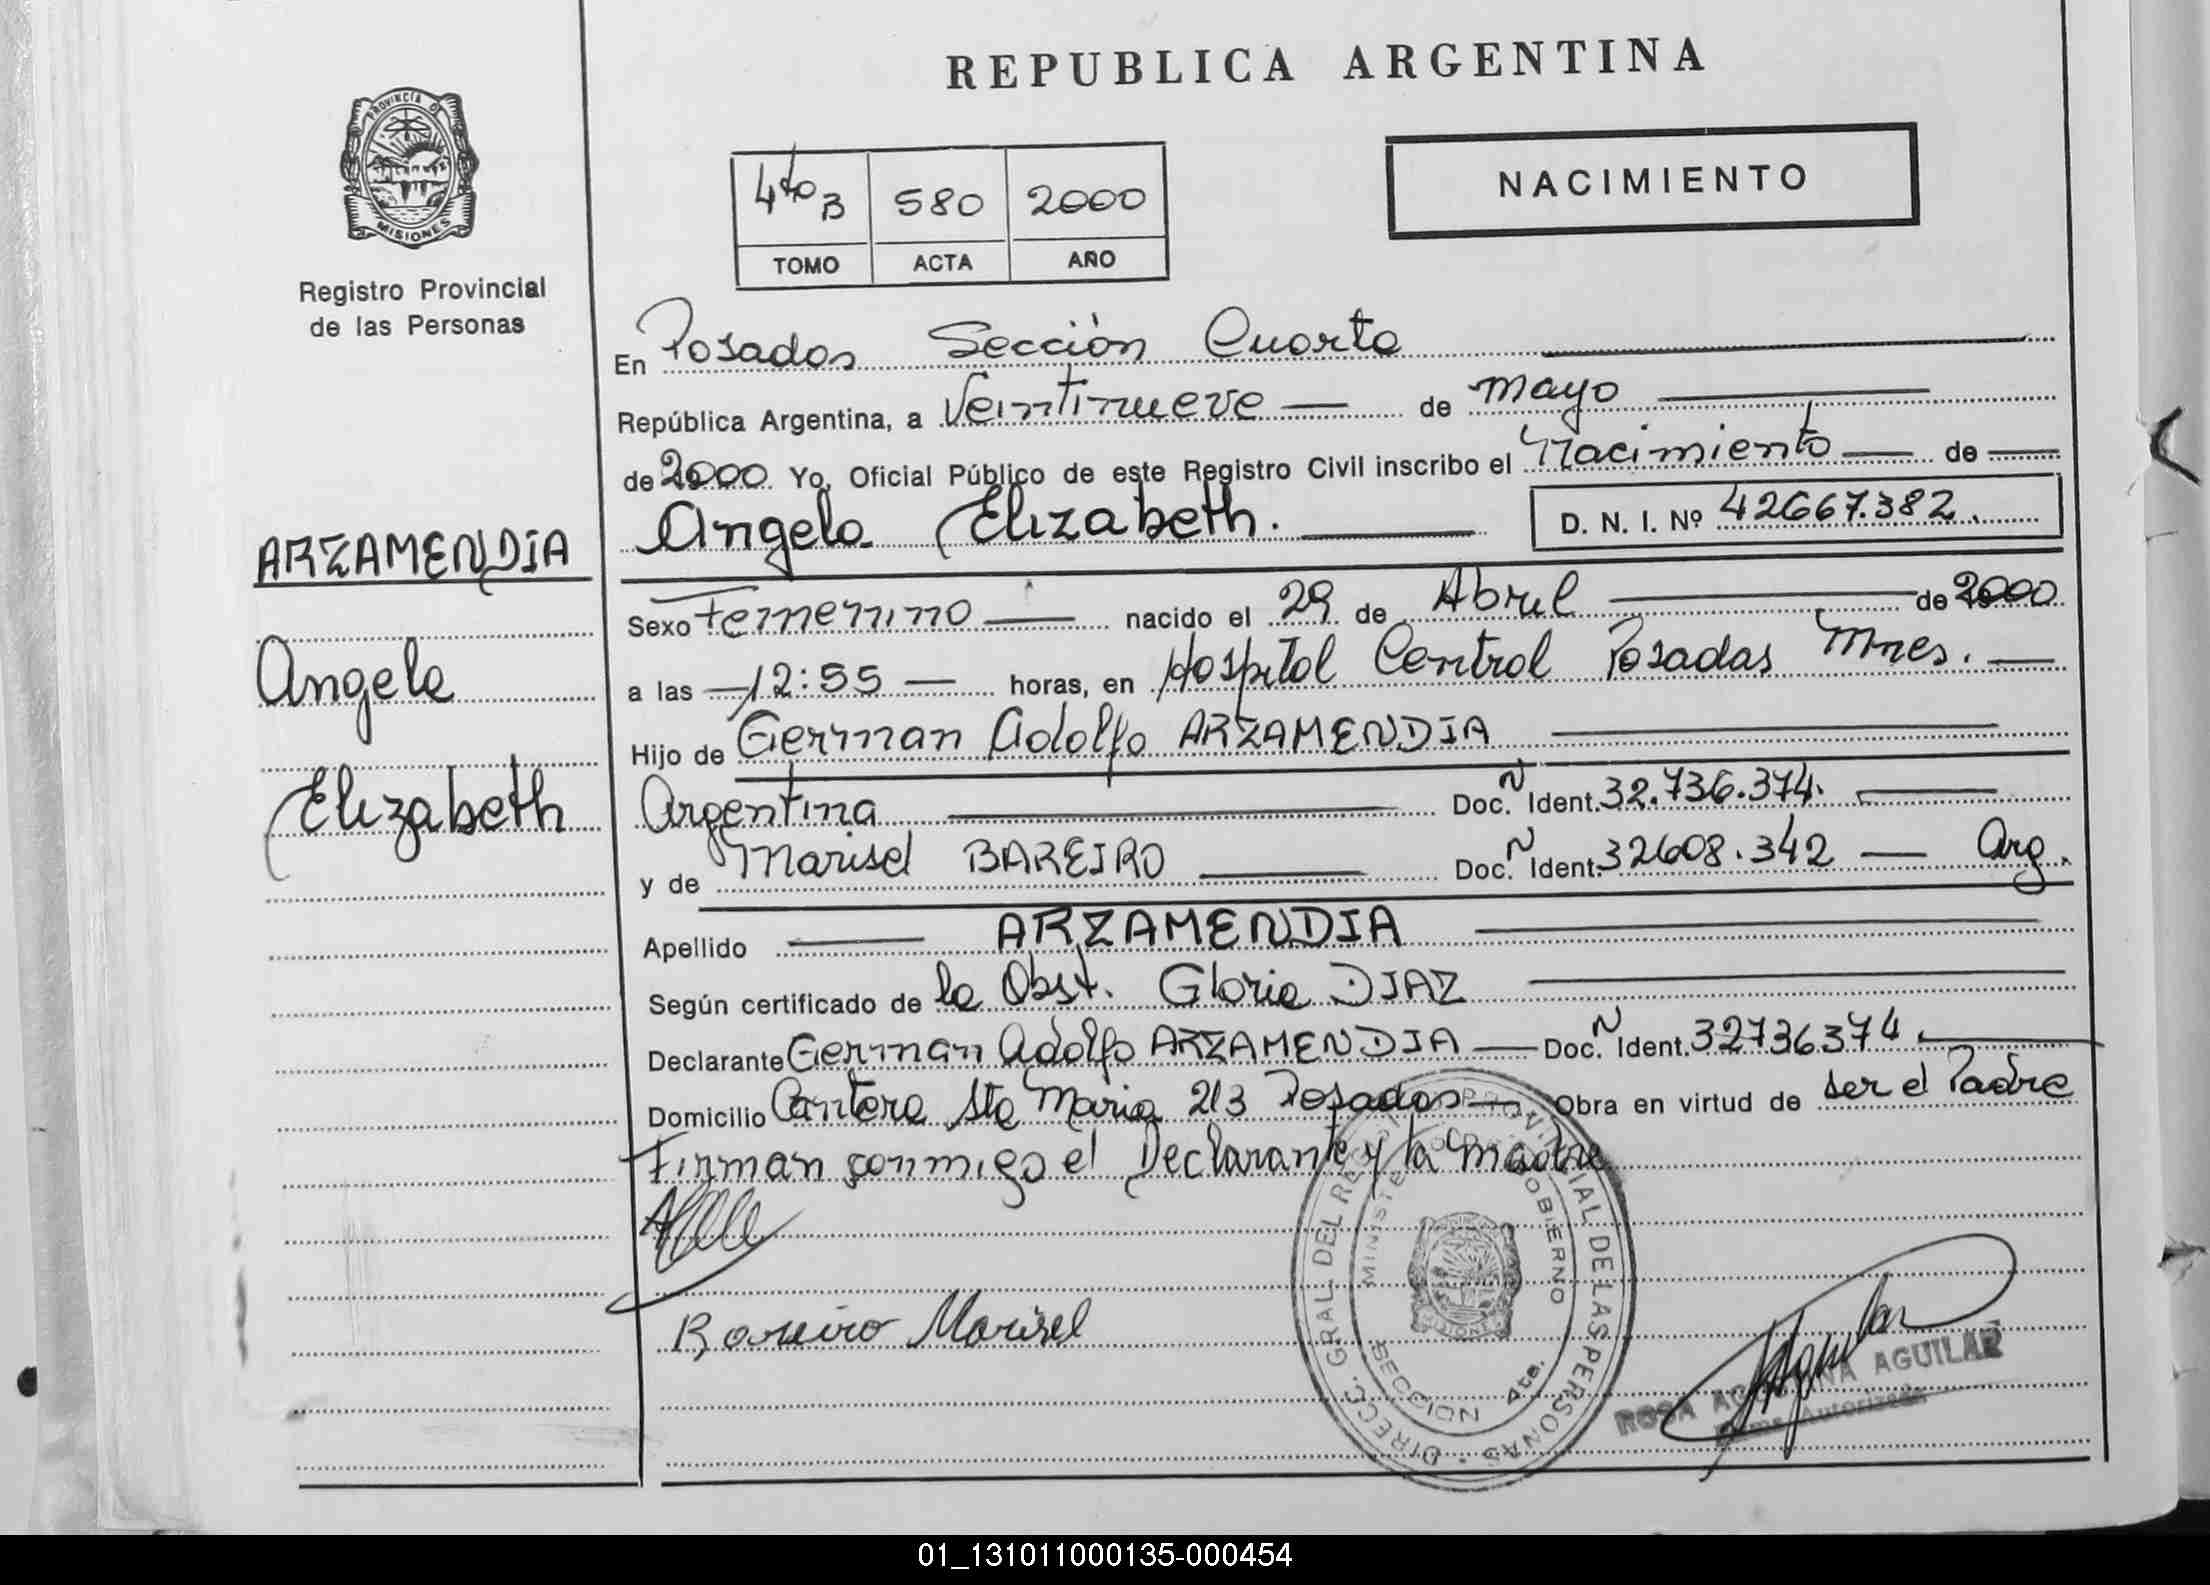 REPUBLICA ARGENTINA
PROVINCIA D
MISIONES
Registro Provincial
de las Personas
4to B 580 2000
TOMO ACTA AÑO
NACIMIENTO
En Posadas Sección Cuarta
República Argentina, a Veintinueve de mayo
de 2000 Yo, Oficial Público de este Registro Civil inscribo el Nacimiento de
Angela Elizabeth. D. N. I. Nº 42667.382.
ARZAMENDIA
Angela
Elizabeth
Sexo Femenino nacido el 29 de Abril de 2000
a las 12:55 horas, en Hospital Central Posadas Mnes.
Hijo de German Adolfo ARZAMENDIA
Argentina Doc. N Ident. 32.736.374.
y de Marisel BAREIRO Doc. N Ident. 32608.342 Arg.
Apellido ARZAMENDIA
Según certificado de la Obst. Gloria DIAZ
Declarante German Adolfo ARZAMENDIA Doc. N Ident. 32736374
Domicilio Cantera Sta Maria 213 Posadas Obra en virtud de ser el Padre
Firman conmigo el Declarante y la madre
Bareiro Marisel
DIRECC. GRAL. DEL REGIST PROVINCIAL DE LAS PERSONAS
MINISTE GOBIERNO
MISIONES
SECCION 4ta.
Aguilar
ROSA AGUILAR
Firma Autorizada
01_131011000135-000454